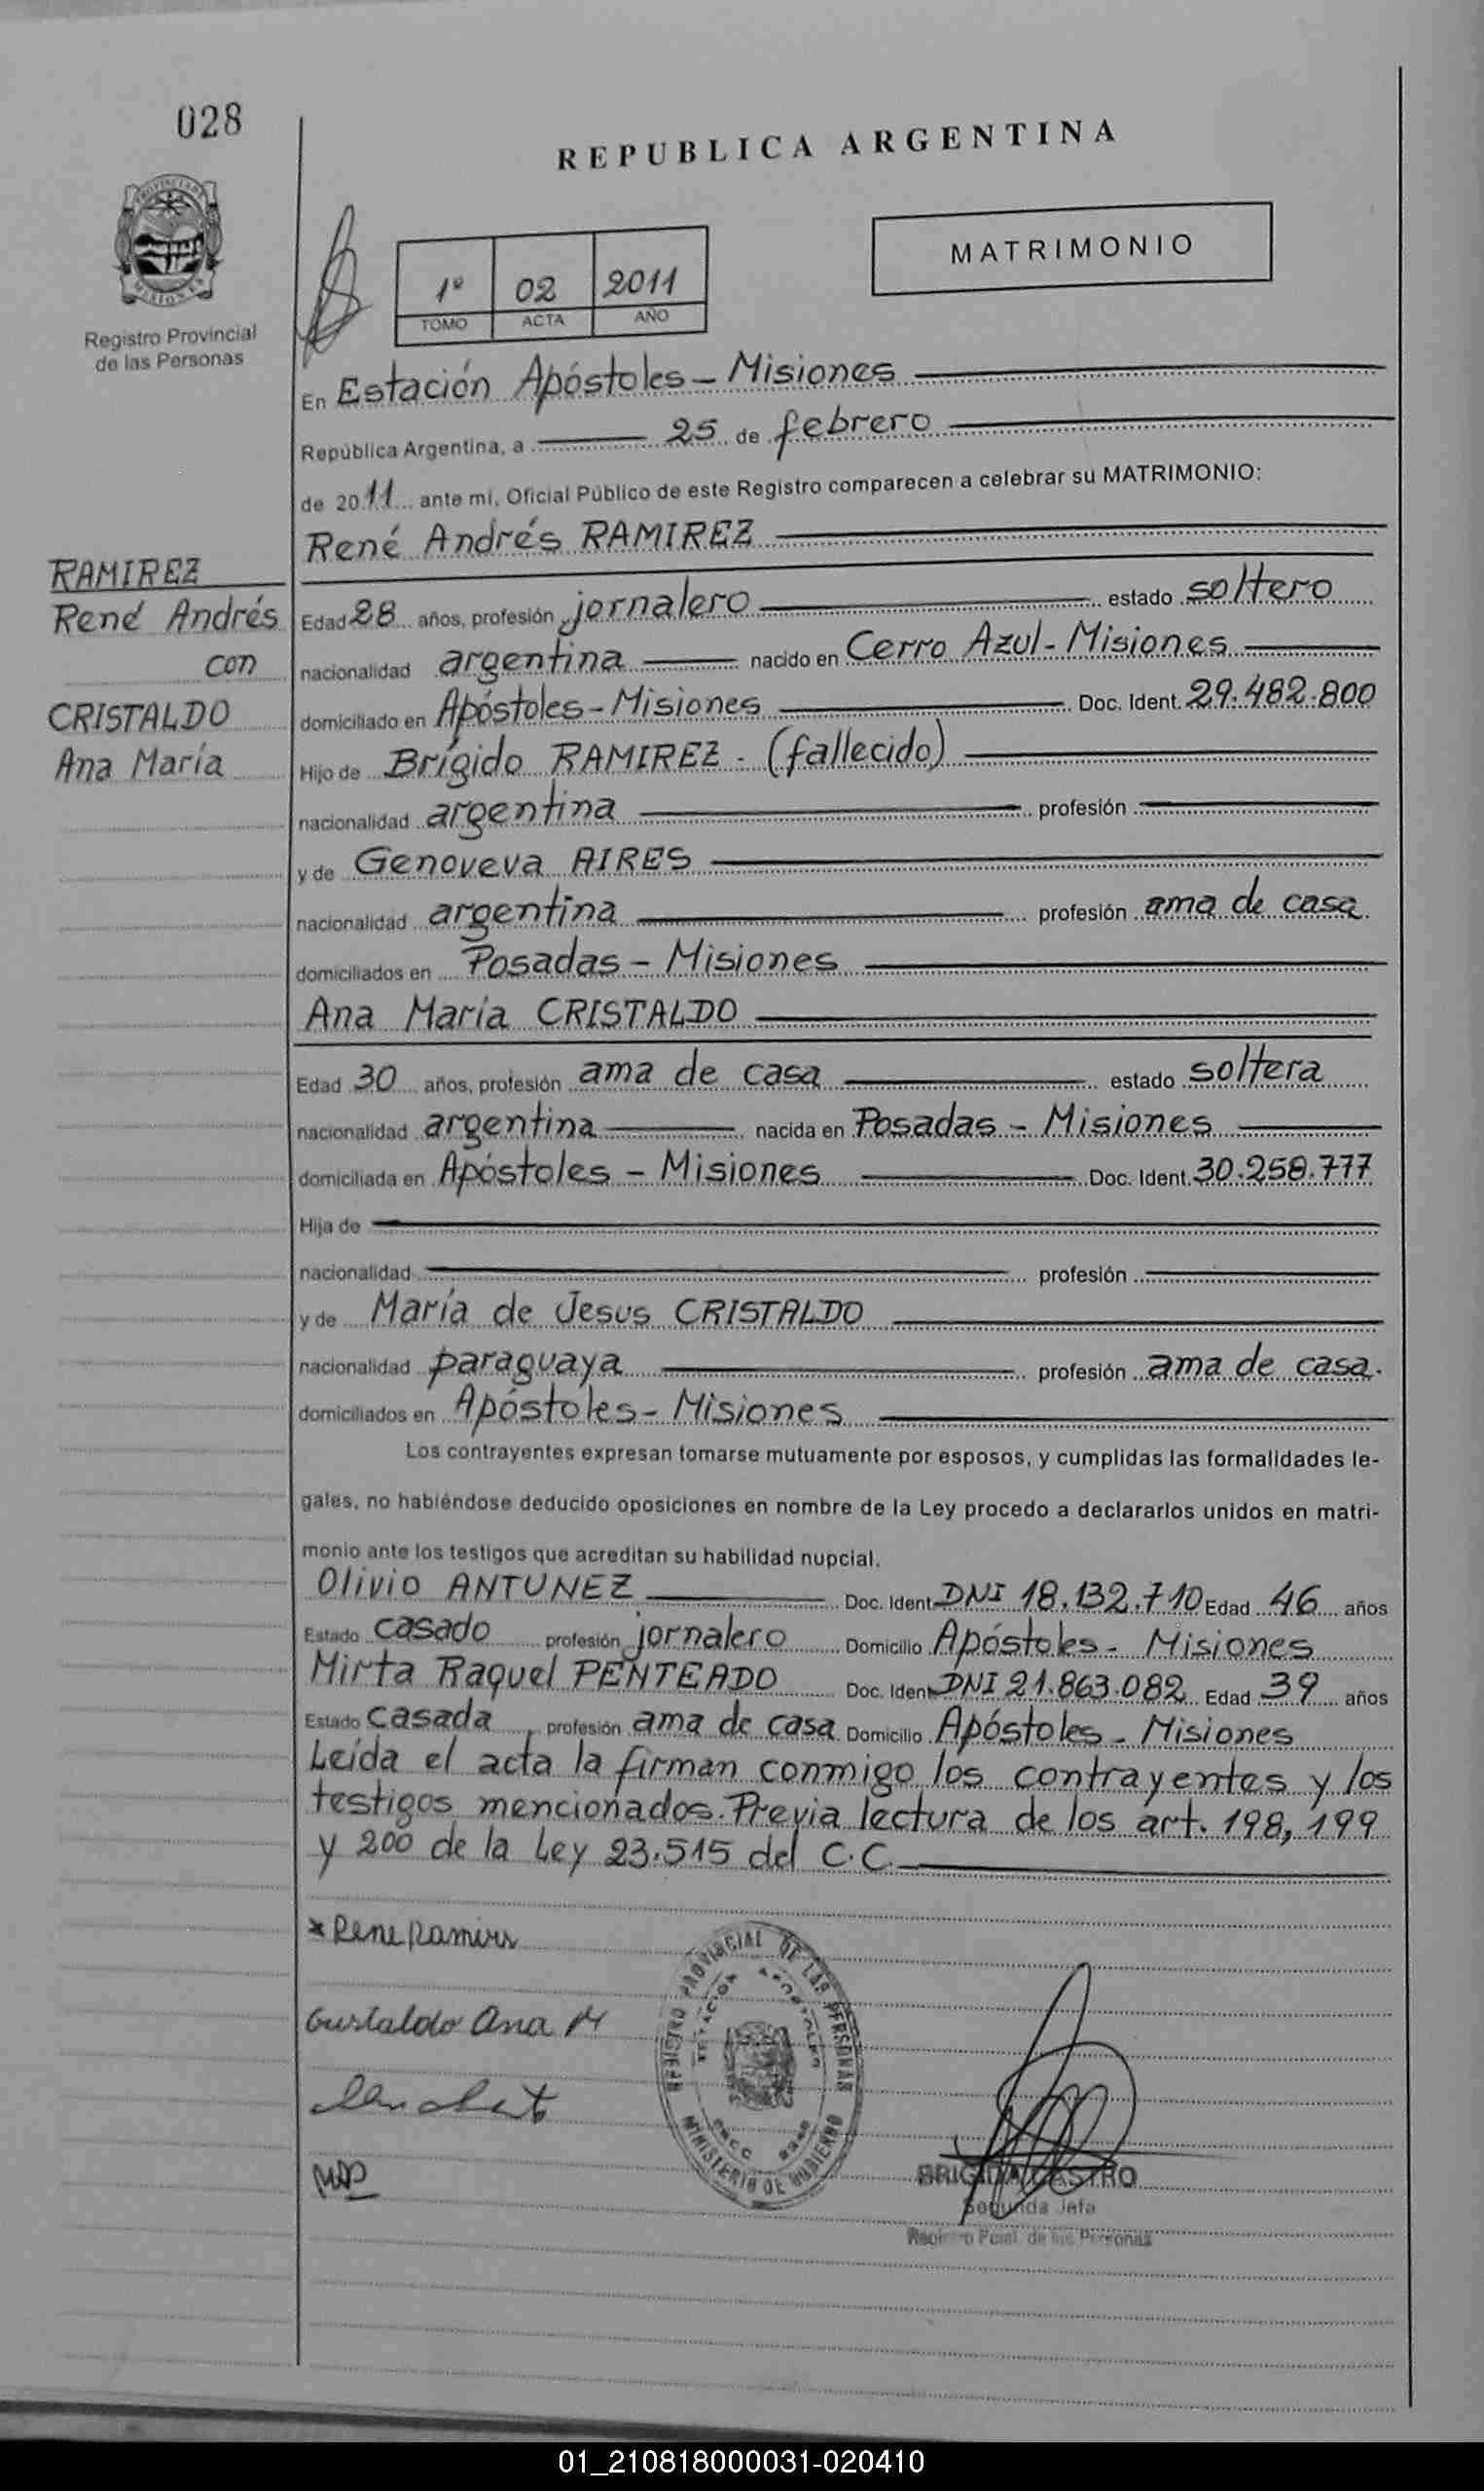 028
REPUBLICA ARGENTINA
PROVINCIA DE MISIONES
Registro Provincial
de las Personas
1º 02 2011
TOMO ACTA AÑO
MATRIMONIO
En Estación Apóstoles - Misiones
República Argentina, a 25 de febrero
de 2011 ante mí, Oficial Público de este Registro comparecen a celebrar su MATRIMONIO:
René Andrés RAMIREZ
RAMIREZ
René Andrés
con
CRISTALDO
Ana María
Edad 28 años, profesión jornalero estado soltero
nacionalidad argentina nacido en Cerro Azul - Misiones
domiciliado en Apóstoles - Misiones Doc. Ident. 29.482.800
Hijo de Brígido RAMIREZ - (fallecido)
nacionalidad argentina profesión
y de Genoveva AIRES
nacionalidad argentina profesión ama de casa
domiciliados en Posadas - Misiones
Ana María CRISTALDO
Edad 30 años, profesión ama de casa estado soltera
nacionalidad argentina nacida en Posadas - Misiones
domiciliada en Apóstoles - Misiones Doc. Ident. 30.258.777
Hija de
nacionalidad profesión
y de María de Jesus CRISTALDO
nacionalidad paraguaya profesión ama de casa.
domiciliados en Apóstoles - Misiones
Los contrayentes expresan tomarse mutuamente por esposos, y cumplidas las formalidades le-
gales, no habiéndose deducido oposiciones en nombre de la Ley procedo a declararlos unidos en matri-
monio ante los testigos que acreditan su habilidad nupcial.
Olivio ANTUNEZ Doc. Ident. DNI 18.132.710 Edad 46 años
Estado casado profesión jornalero Domicilio Apóstoles - Misiones
Mirta Raquel PENTEADO Doc. Ident. DNI 21.863.082 Edad 39 años
Estado casada, profesión ama de casa Domicilio Apóstoles - Misiones
Leída el acta la firman conmigo los contrayentes y los
testigos mencionados. Previa lectura de los art. 198, 199
y 200 de la Ley 23.515 del C.C.
x Rene Ramirez
Cristaldo Ana M
MRP
REGISTRO PROVINCIAL DE LAS PERSONAS
ESTACION APOSTOLES
MINISTERIO DE GOBIERNO
BRIGIDA CASTRO
Segunda Jefa
Registro Pcial. de las Personas
01_210818000031-020410